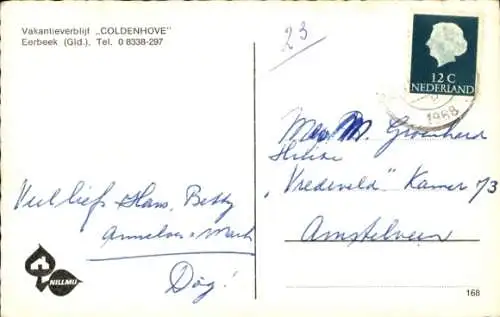 Vakantieverblijf „COLDENHOVE"
Eerbeek (Gld.), Tel. 0 8338-297
23
12 C
NEDERLAND
1968
M. Groenhard
„Vredeveld" Kamer 173
Amstelveen
Veel liefs Hans, Betty
Annelies & Mark
Dag!
NILLMIJ
168